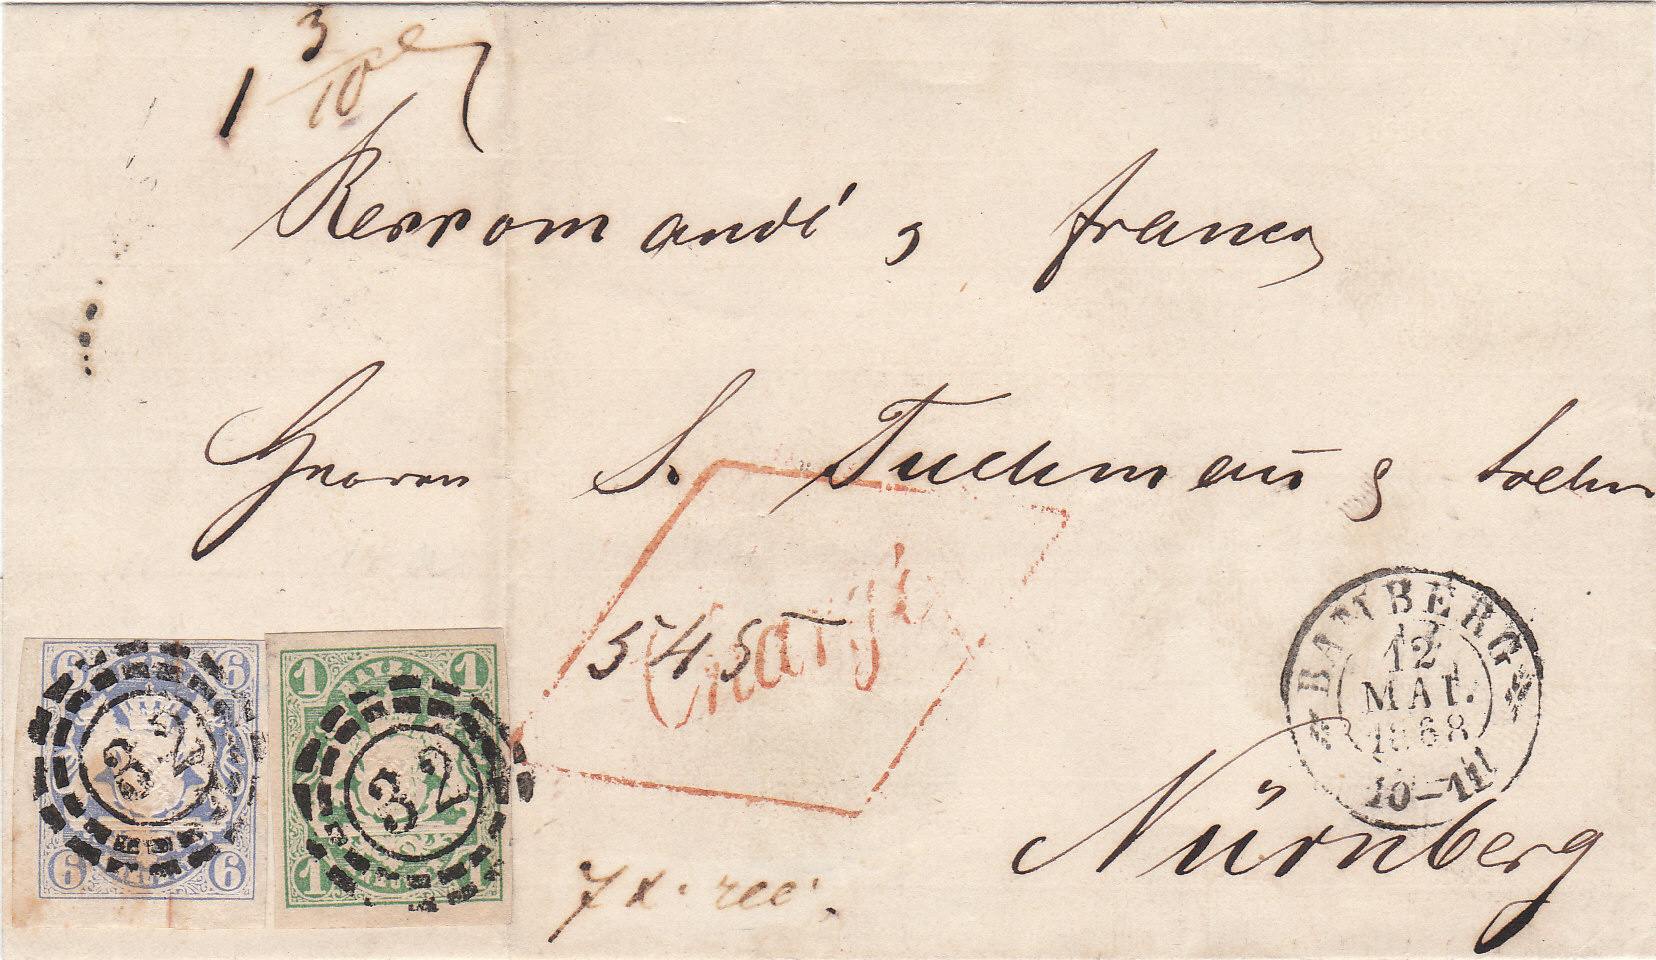 1 3/10
Recomandé & franco
Herrn S. Tuchmann & Soehne
Chargé
545
BAMBERG
12
MAI.
1868
10-11
6 6
32
6 6
1 1
32
1
7 x. rec.
Nürnberg